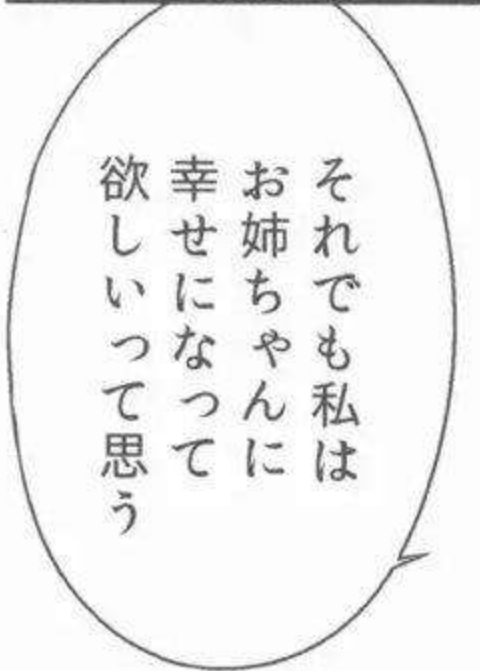 それでも私は
お姉ちゃんに
幸せになって
欲しいって思う